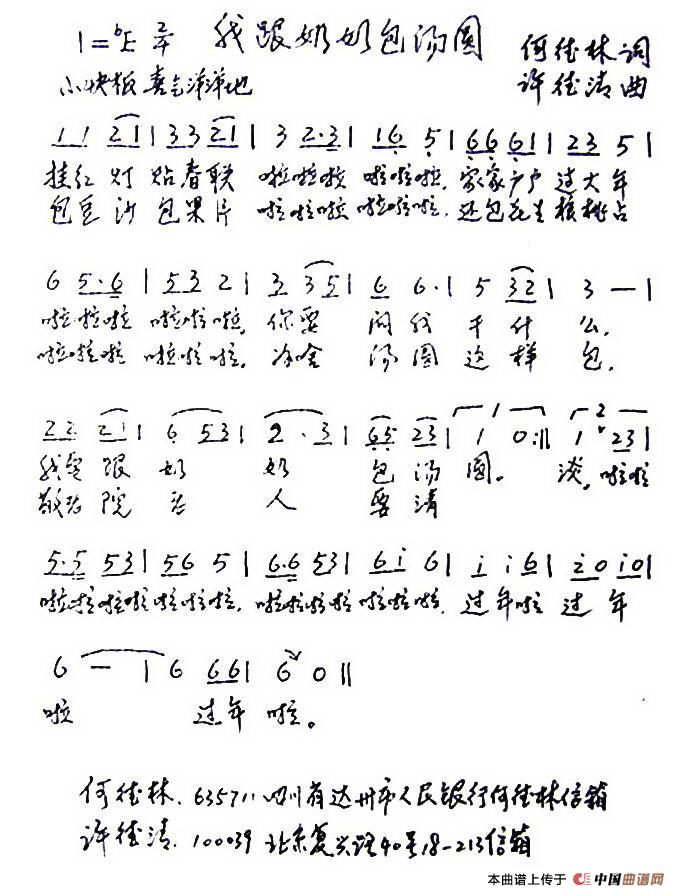 1=♭E 2/4 我跟奶奶包汤圆 何德林 词
小快板 喜气洋洋地 许德清 曲
1 1 2 1 | 3 3 2 1 | 3 2·3 | 1 6 5 | 6 6 6 1 | 2 3 5 |
挂红灯 贴春联 啦啦啦 啦啦啦, 家家户户 过大年
包豆沙 包果片 啦啦啦 啦啦啦, 还包花生 核桃占
6 5·6 | 5 3 2 | 3 3 5 | 6 6· | 5 3 2 | 3 — |
啦啦啦 啦啦啦, 你要 问我 干什 么,
啦啦啦 啦啦啦. 汤圆 这样 包,
2 2 2 1 | 6 5 3 | 2 · 3 | 6 5 2 3 | 1 0 :|| 1 2 3 |
我要跟 奶 奶 包汤 圆。 啦啦
敬老院 老 人 要请
5·5 5 3 | 5 6 5 | 6·6 5 3 | 6 i 6 | i i 6 | 2 0 i 0 |
啦啦啦啦 啦啦啦, 啦啦啦啦 啦啦啦, 过年啦 过 年
6 — | 6 6 6 | 6 0 ||
啦 过年 啦。
何德林. 635711 四川省达州市人民银行何德林信箱
许德清. 100039 北京复兴路40号18-213信箱
本曲谱上传于 中国曲谱网